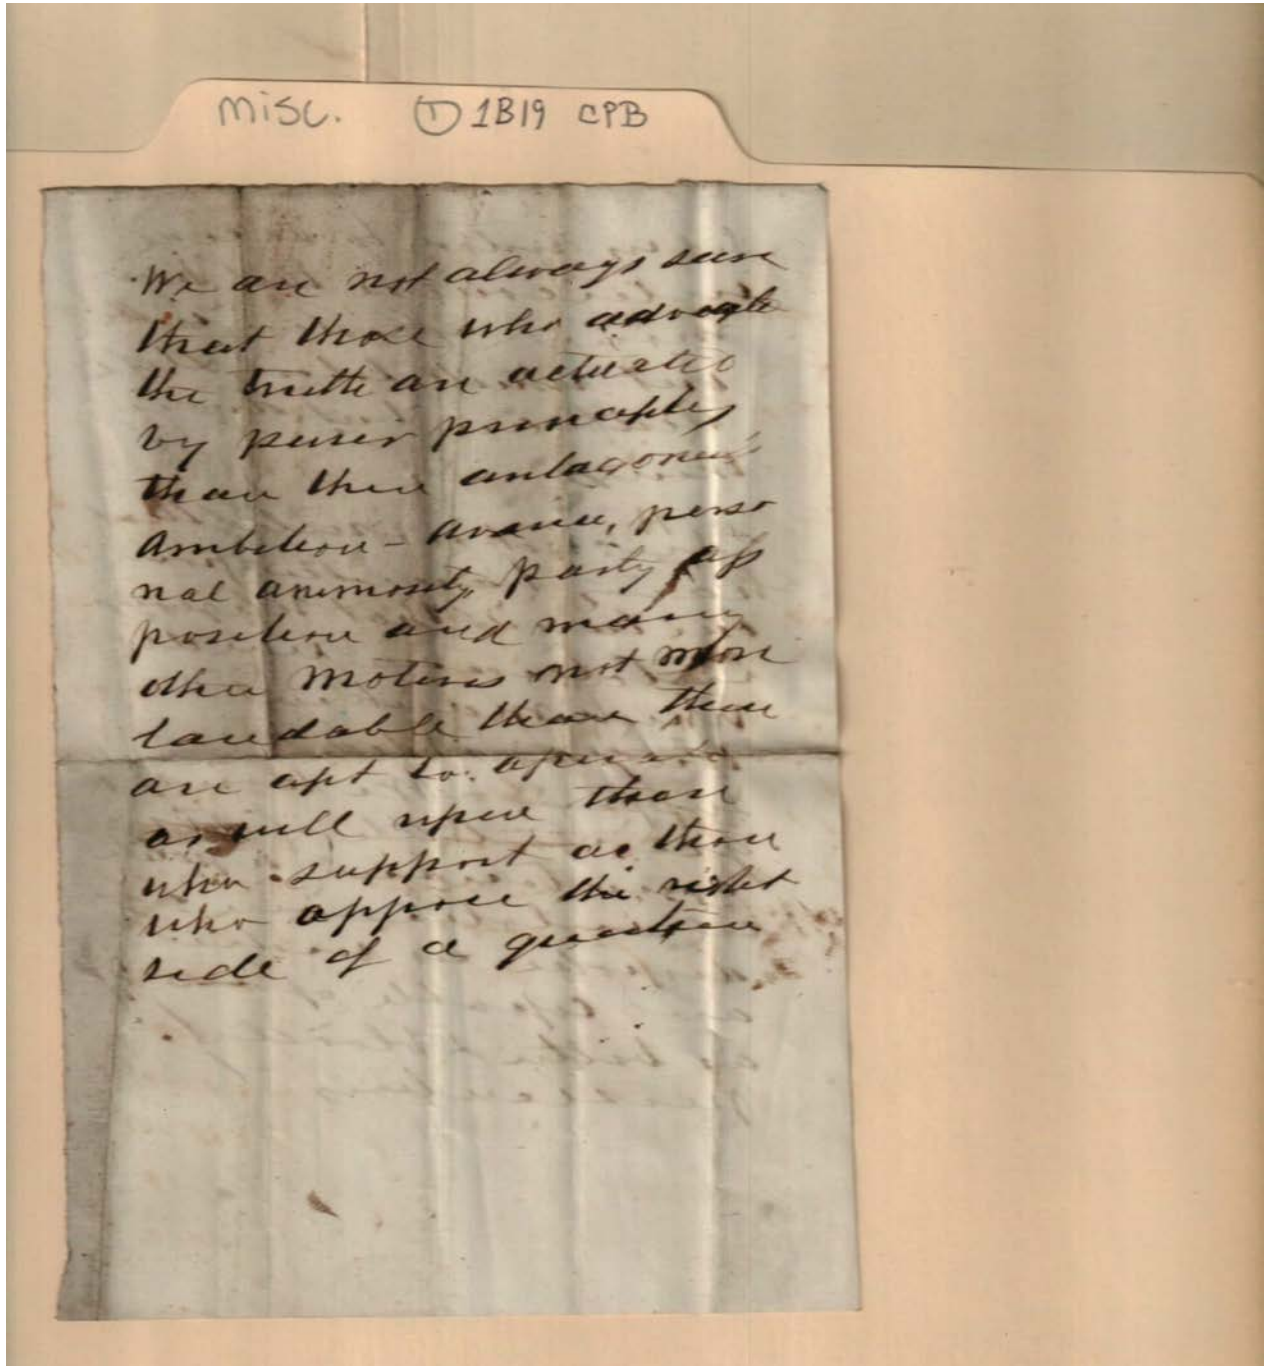 misc. ① 1B19 CPB
We are not always sure
that those who advocate
the truth are actuated
by purer principles
than their antagonists
Ambition - avarice, perso
nal animosity, party op
position and many
other motives not more
laudable than these
are apt to operate
as well upon those
who support as those
who oppose the right
side of a question